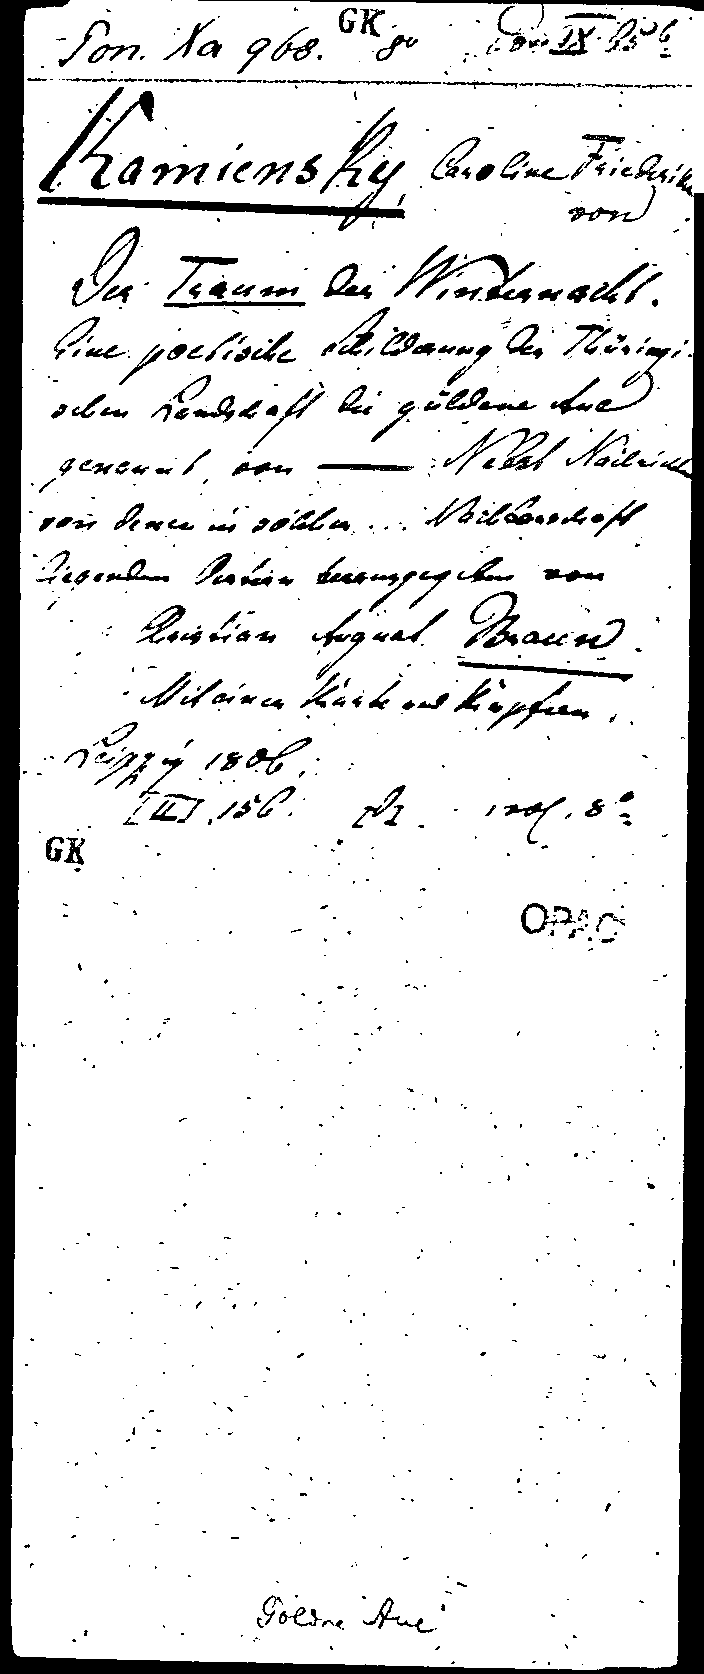 GK
Pon. Xa 968. 8° Pon IX 85 b
Kamiensky, Caroline Friederike
von
Der Traum der Winternacht.
Eine poetische Schilderung der Thüringi-
schen Landschaft die güldene Aue
genannt, von —— Nebst Nachricht
von denen in solcher ... Nachbarschaft
liegenden herausgegeben von
Christian August Braun.
Mit einer Karte und Kupfern.
Leipzig 1806.
[II] 156. 8°
GK
OPAC
Goldne Aue